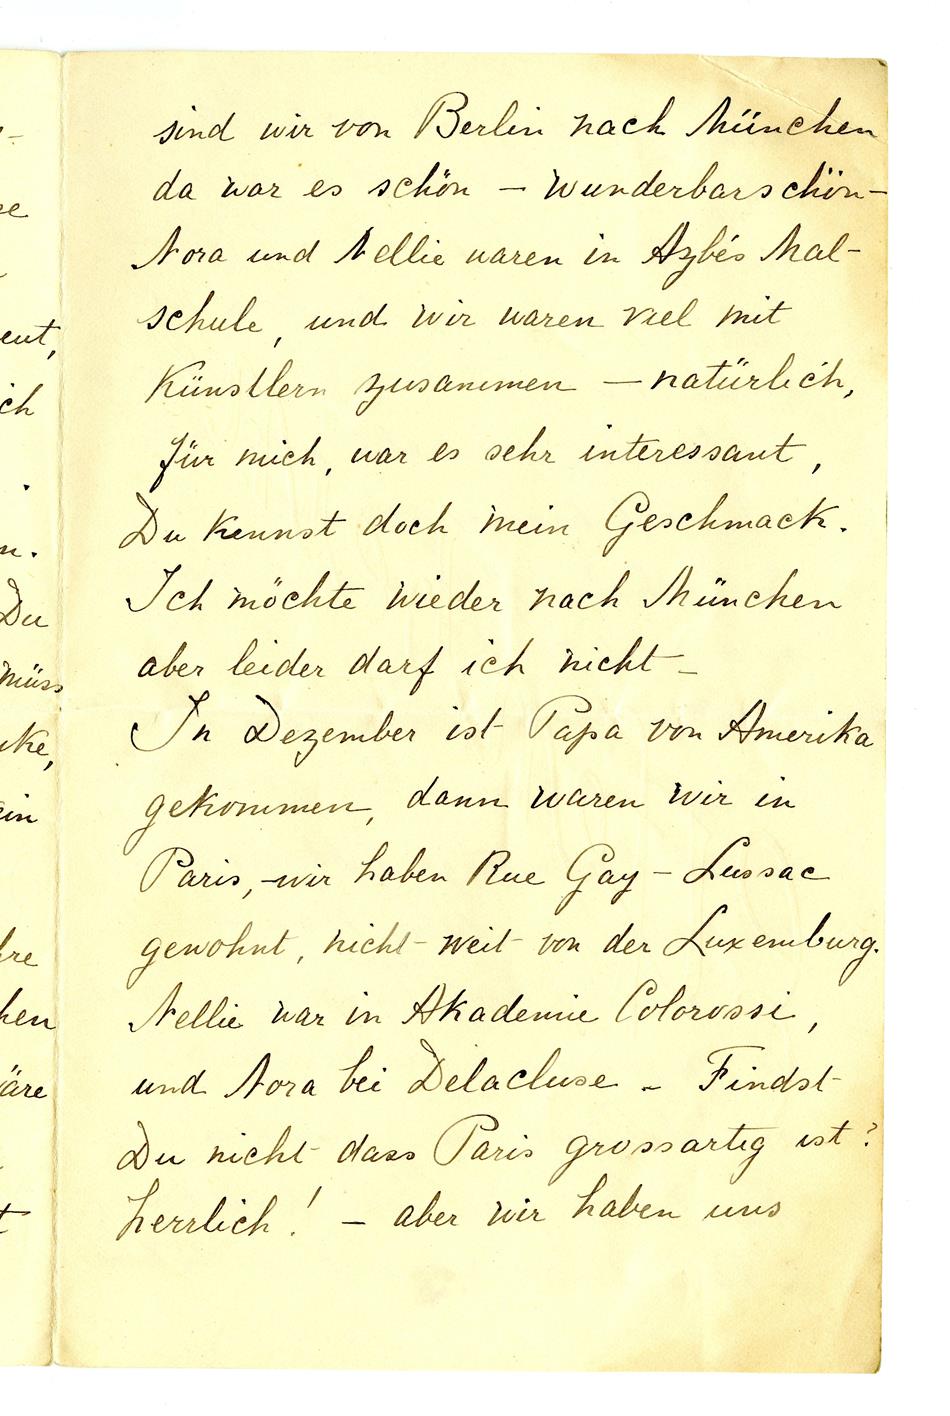 sind wir von Berlin nach München
da war es schön – wunderbarschön –
Nora und Nellie waren in Azbés Mal-
schule, und wir waren viel mit
Künstlern zusammen – natürlich,
für mich, war es sehr interessant,
Du kennst doch mein Geschmack.
Ich möchte wieder nach München
aber leider darf ich nicht –
In Dezember ist Papa von Amerika
gekommen, dann waren wir in
Paris, – wir haben Rue Gay – Lussac
gewohnt, nicht weit von der Luxemburg.
Nellie war in Akademie Colorossi,
und Nora bei Delacluse – Findst
Du nicht dass Paris grossartig ist?
herrlich! – aber wir haben uns